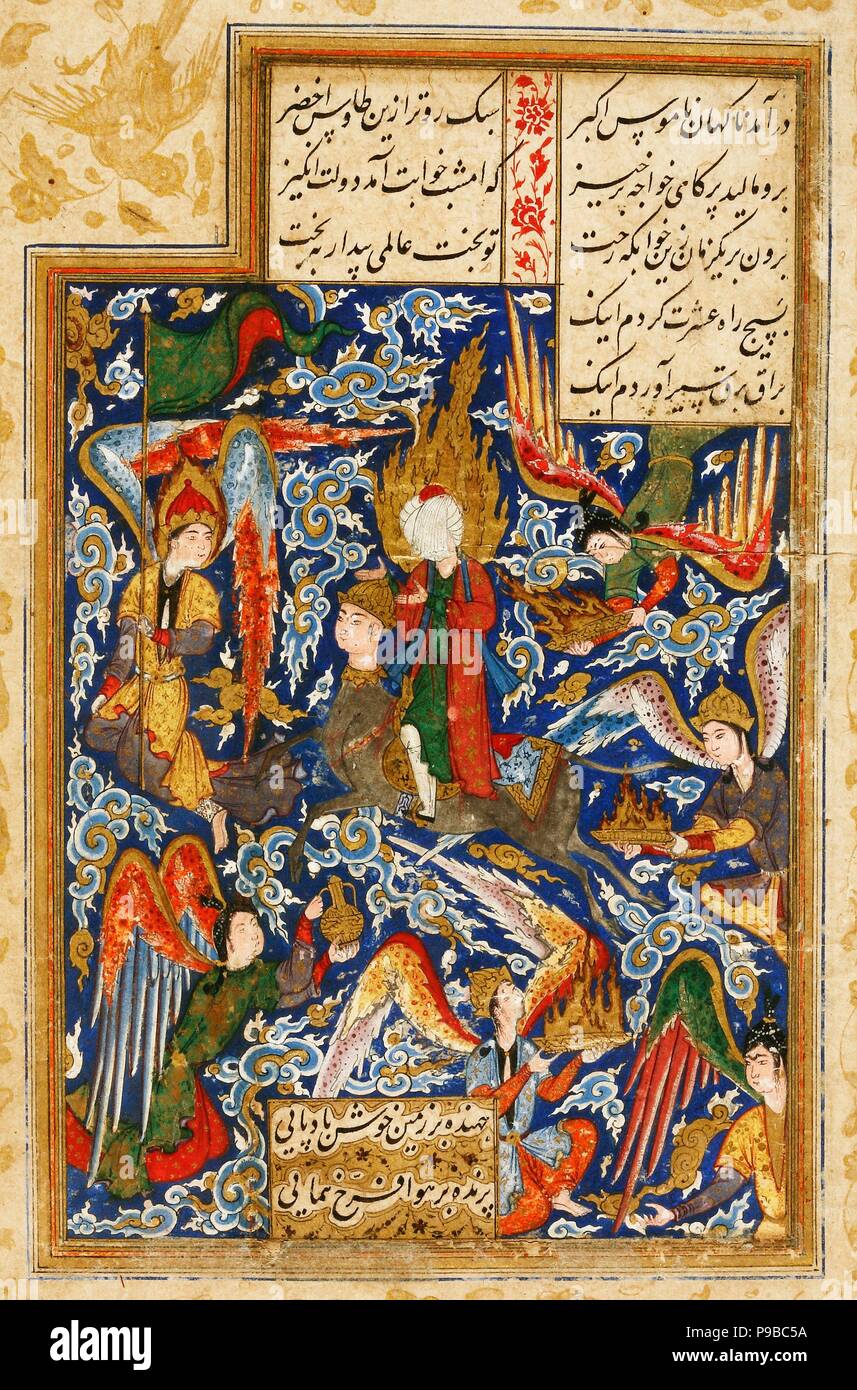 درآمد ناکهان ناموس اکبر
سبک رو تر ازین طاوس اخضر
برو مالید پر کای خواجه برخیز
که امشب خوابت آمد دولت انکیز
برون بر یکزمان زین خوابکه رخت
تو بخت عالمی بیدار به بخت
بسیج راه عشرت کردم اینک
براق برق سیر آوردم اینک
جهنده بر زمین خوش بادپایی
پرنده بر هوا فرخ همایی
alamy
Image ID: P9BC5A
www.alamy.com